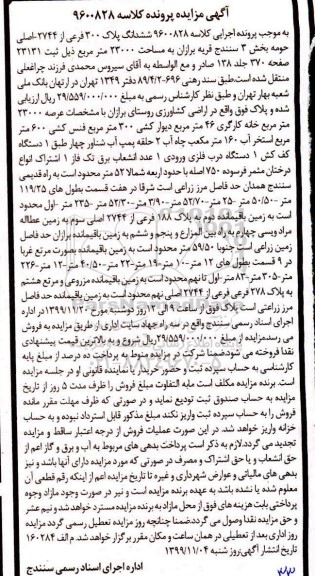 آگهی مزایده پرونده کلاسه ۹۶۰۰۸۲۸
به موجب پرونده اجرایی کلاسه ۹۶۰۰۸۲۸ ششدانگ پلاک ۳۰۰ فرعی از ۲۷۴۴-اصلی
حومه بخش ۳ سنندج قریه برازان به مساحت ۲۳۰۰۰ متر مربع ذیل ثبت ۲۳۱۳۱
صفحه ۳۷۰ جلد ۱۳۸ صادر و مع الواسطه به آقای سیروس محمدی فرزند چراغعلی
منتقل شده است،طبق سند رهنی ۶۹۶-۸۹/۴/۲ دفتر ۱۳۴۹ تهران در ارتهان بانک ملی
شعبه بهار تهران و طبق نظر کارشناس رسمی به مبلغ ۲۹/۵۵۹/۰۰۰/۰۰۰ ریال ارزیابی
شده و پلاک فوق واقع در اراضی کشاورزی روستای برازان با مشخصات عرصه ۲۳۰۰۰
متر مربع خانه کارگری ۴۶ متر مربع دیوار کشی ۳۰۰ متر مربع فنس کشی ۶۰۰ متر
مربع استخر آب ۱۶۰ متر مکعب چاه آب ۲ حلقه پمپ آب شناور چهار طبق ۱ دستگاه
کف کش ۱ دستگاه درب فلزی ورودی ۱ عدد انشعاب برق تک فاز ۱ اشتراک انواع
درختان مثمر فرسوده ۷۵۰ اصله با حدود اربعه شمالا ۵۲ متر محدود است به راه قدیمی
سنندج همدان حد فاصل مرز زراعی است شرقا در هفت قسمت بطول های ۱۱۹/۲۵
متر -۵۰/۵۰ متر -۲۵ متر-۵۲/۷۰ متر-۳/۹۰ متر-۵۳/۳۰ متر-۲۳۵ متر -اول محدود
است به زمین باقیمانده دوم به پلاک ۱۸۸ فرعی از ۲۷۴۴ اصلی سوم به زمین عطااله
مراد ویسی چهارم به راه بین المزارع و پنجم و ششم به زمین باقیمانده برازان حد فاصل
زمین زراعی است جنوبا ۵۹/۵۰ متر محدود است به زمین باقیمانده بصورت مرتع غربا
در ۹ قسمت بطول های ۱۲ متر-۱۰ متر-۱۹ متر-۲۳ متر-۴۰/۵۰ متر-۱۲ متر-۲۲۶
متر-۳۰۵ متر-۸۳ متر-اول تا نهم محدود است به زمین باقیمانده مزروعی و مرتع هشتم
به پلاک ۲۷۸ فرعی فرعی از ۲۷۴۴ اصلی نهم محدود است به زمین باقیمانده حد فاصل
مرز زراعتی است پلاک فوق از ساعت ۹ الی ۱۲ روز دوشنبه مورخ ۱۳۹۹/۱۱/۲۰ در اداره
اجرای اسناد رسمی سنندج واقع در سه راه جهاد سایت اداری از طریق مزایده به فروش
می رسد.مزایده از مبلغ ۲۹/۵۵۹/۰۰۰/۰۰۰ریال شروع و به بالاترین قیمت پیشنهادی
نقدا فروخته می شود.ضمنا شرکت در مزایده منوط به پرداخت ده درصد از مبلغ پایه
کارشناسی به حساب سپرده ثبت و حضور خریدار یا نماینده قانونی او در جلسه مزایده
است. برنده مزایده مکلف است مابه التفاوت مبلغ فروش را ظرف مدت ۵ روز از تاریخ
مزایده به حساب صندوق ثبت تودیع نماید و در صورتی که ظرف مهلت مقرر مانده
فروش را به حساب سپرده ثبت واریز نکند مبلغ مذکور قابل استرداد نبوده و به حساب
خزانه واریز خواهد شد. در این صورت عملیات فروش از درجه اعتبار ساقط و مزایده
تجدید می گردد.لازم به ذکر است پرداخت بدهی های مربوط به آب و برق و گاز اعم از
حق انشعاب و یا حق اشتراک و مصرف در صورتی که مورد مزایده دارای آنها باشد و نیز
بدهی های مالیاتی و عوارض شهرداری و غیره تا تاریخ مزایده اعم از اینکه رقم قطعی آن
معلوم شده یا نشده باشد به عهده برنده مزایده است و نیز در صورت وجود مازاد وجوه
پرداختی بابت هزینه های فوق از محل مازاد به برنده مزایده مسترد خواهد شد و نیم عشر
و حق مزایده نقدا وصول می گردد.ضمنا چنانچه روز مزایده تعطیل رسمی گردد مزایده
روز اداری بعد از تعطیلی در همان ساعت و مکان مقرر برگزار خواهد شد. م الف ۱۶۰۲۸۴
تاریخ انتشار آگهی:روز شنبه ۱۳۹۹/۱۱/۰۴
اداره اجرای اسناد رسمی سنندج